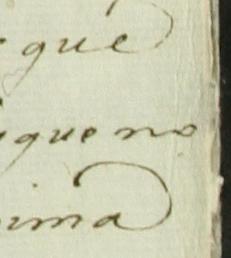 que
que no
ima